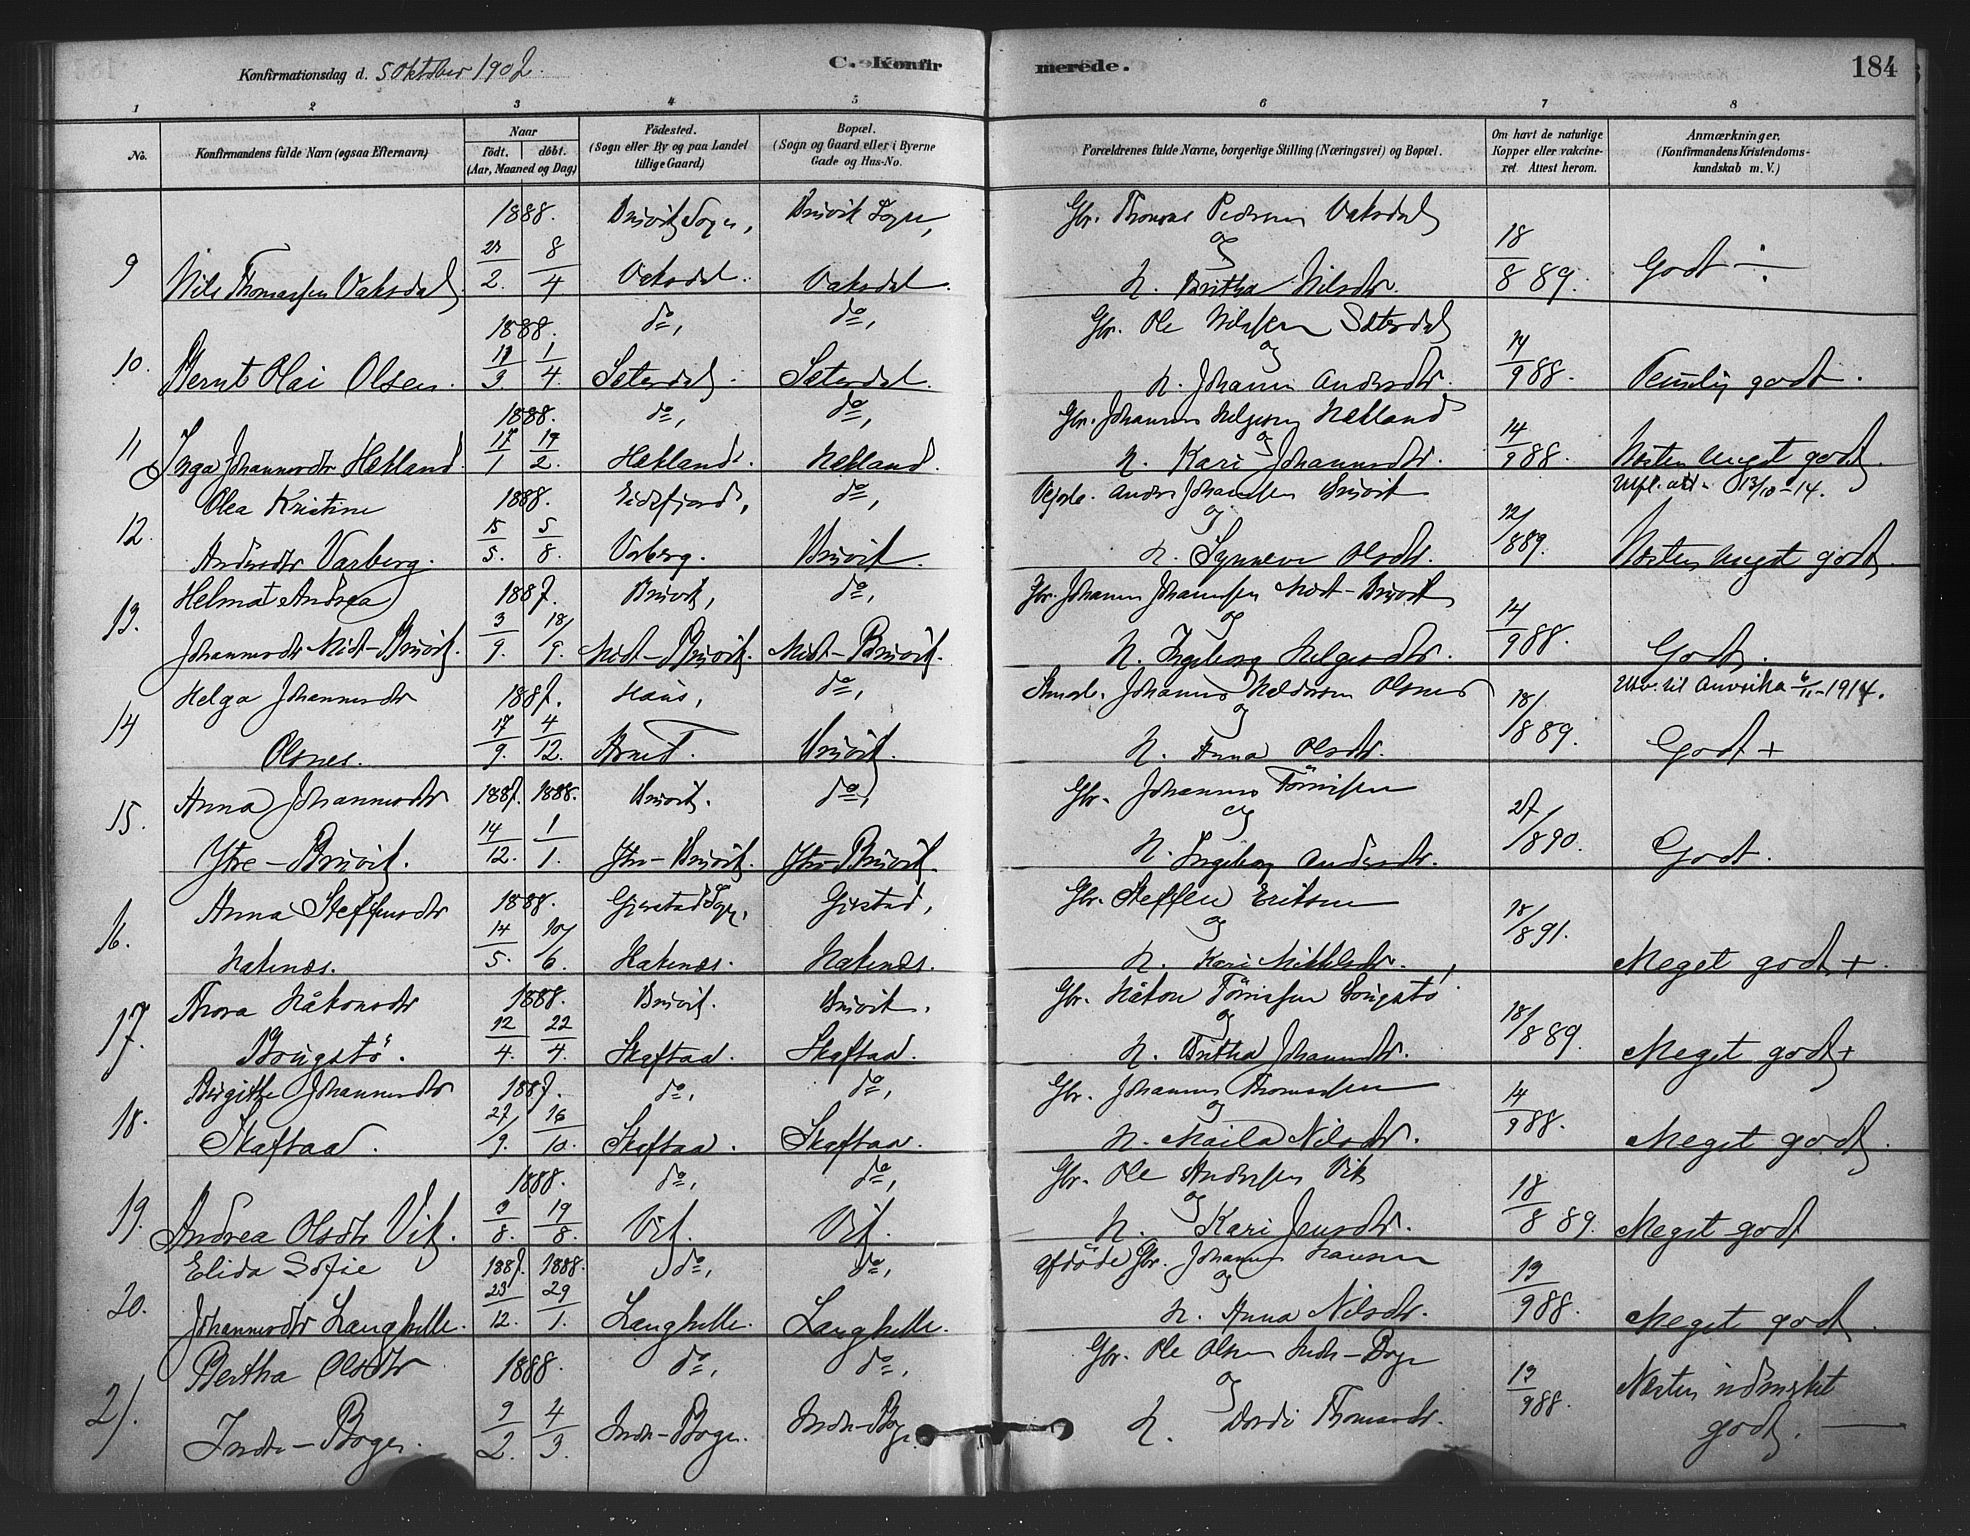 Konfirmationsdag d. 5 Oktober 1902.
C. Konfirmerede.
184
1 2 3 4 5 6 7 8
No.
Konfirmandens fulde Navn (ogsaa Efternavn)
Naar
födt. döbt.
(Aar, Maaned og Dag)
Födested.
(Sogn eller By og paa Landet
tillige Gaard)
Bopæl.
(Sogn og Gaard eller i Byerne
Gade og Hus-No.
Forældrenes fulde Navne, borgerlige Stilling (Næringsvei) og Bopæl.
Om havt de naturlige
Kopper eller vakcine-
ret. Attest herom.
Anmærkninger.
(Konfirmandens Kristendoms-
kundskab m. V.)
1888. Bruvik Sogn, Bruvik Sogn, Gbr. Thomas Pedersen Vaksdal
og
9 Nils Thomassen Vaksdal 2. 8/4 Vaksdal. Vaksdal. H. Britha Nilsdtr. 18/8 89. Godt ÷
1888. do, do, Gbr. Ole Nilssen Sæterdal
og
10. Bernt Olai Olsen. 11/3 1/4 Seterdal. Seterdal. H. Johanna Andersdtr. 14/9 88. Temlig godt.
1888. do, do, Gbr. Johannes Helgesen Hætland
og
11 Inga Johannesdtr Hetland 17/1 19/2. Hetland. Hetland. H. Kari Johannesdtr. 14/9 88. Næsten Meget godt.
Olea Kristine 1888. Eidsfjord, do, Anders Johannessen Bruvik Utfl. att. 13/10-14.
og
12. Andersdtr Varberg. 15/5. 5/8. Varberg. Bruvik. H. Synneve Olsdtr. 12/8 89. Næsten Meget godt
Helma Andrea 1887. Bruvik, do, Gbr. Johannes Johannessen Midt-Bruvik
og
13. Johannesdtr Midt-Bruvik. 3/9. 18/9. Midt-Bruvik. Midt-Bruvik. H. Ingeborg Helgesdtr. 14/9 88. Godt.
Helga Johannesdtr 1887. Haus, do, Johannes Olsnes Utv. til Amerika 6/11-1914.
og
14 Olsnes. 17/9. 4/12. Bruvik. H. Anna Olsdtr. 18/8 89. Godt +
Anna Johannesdtr 1887. 1888. Bruvik. do, Gbr. Johannes Törrisen
og
15. Ytre-Bruvik. 14/12. 1/1. Ytre-Bruvik. Ytre-Bruvik. H. Ingeborg Andersdtr. 27/8 90. Godt.
Anna Steffensdtr 1888. Gjerstad Sogn, Gjerstad, Gbr. Steffen Eriksen
og
16. Hatenæs. 14/5. Hatenæs. Hatenæs. H. Kari Mikkelsdtr. 18/8 91. Meget godt +.
Thora Håkonsdtr 1888. Bruvik. Bruvik. Gbr. Håkon Törrissen Bougstö
og
17. Bougstö. 12/4. 22/4. Skaftaa. Skaftaa. H. Britha Johannesdtr. 18/8 89. Meget godt +
Birgitte Johannesdtr 1887. do, do, Gbr. Johannes Thomassen
og
18. Skaftaa. 27/9. 16/10. Skaftaa. Skaftaa. H. Maila Nilsdtr. 14/9 88. Meget godt.
1888. do, do, Gbr. Ole Anderssen Vik
og
19. Andrea Olsdtr Vik. 3/8. 19/8. Vik. Vik. H. Kari Jensdtr. 18/8 89. Meget godt
Elida Sofie 1887. 1888. do, do, Afdöde Gbr. Johannes Hansen
og
20. Johannesdtr Langhelle. 23/12. 29/1. Langhelle. Langhelle. H. Anna Nilsdtr. 13/9 88. Meget godt.
Bertha Olsdtr 1888. do, do, Gbr. Ole Olsen Indr-Boge
og
21. Indr-Boge. 9/2. 4/3. Indr-Boge. Indr-Boge. H. Dordi Thomasdtr. 13/9 88. Næsten udmerket
godt.